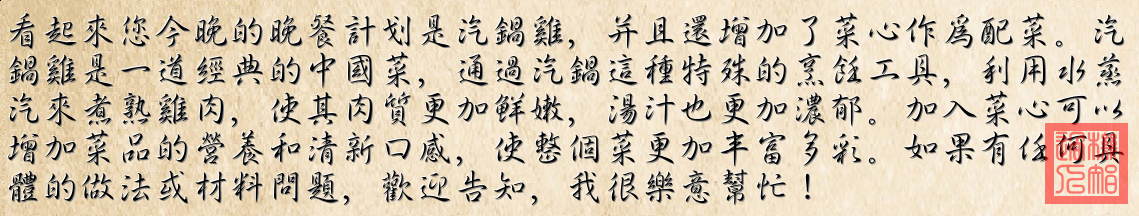 看起來您今晚的晚餐計划是汽鍋雞，并且還增加了菜心作爲配菜。汽
鍋雞是一道經典的中國菜，通過汽鍋這種特殊的烹飪工具，利用水蒸
汽來煮熟雞肉，使其肉質更加鮮嫩，湯汁也更加濃郁。加入菜心可以
增加菜品的營養和清新口感，使整個菜更加丰富多彩。如果有任何具
體的做法或材料問題，歡迎告知，我很樂意幫忙！